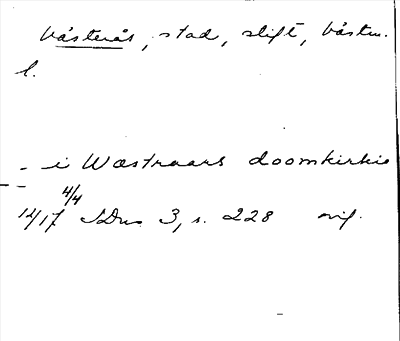 Västerås, stad, stift, Västm.
l.
- i Wæstraars doomkirkie
4/4
1417 SDns 3, s. 228 orig.